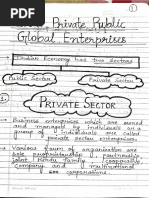 1
Private Public
Global Enterprises
Indian Economy has two Sectors
Public Sector
Private Sector
1.
PRIVATE SECTOR
→ Business enterprises which are owned
and managed by individuals or a
group of individuals are called
private enterprises or private sector.
→ Various forms of organisation are
sole proprietorship, partnership
joint Hindu family
Company and
corporations